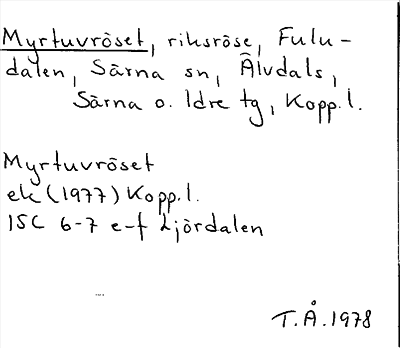 Myrtuvröset, riksröse, Fulu-
dalen, Särna sn, Älvdals,
Särna o. Idre tg, Kopp.l.
Myrtuvröset
ek (1977) Kopp.l.
15C 6-7 e-f Ljördalen
T.Å.1978